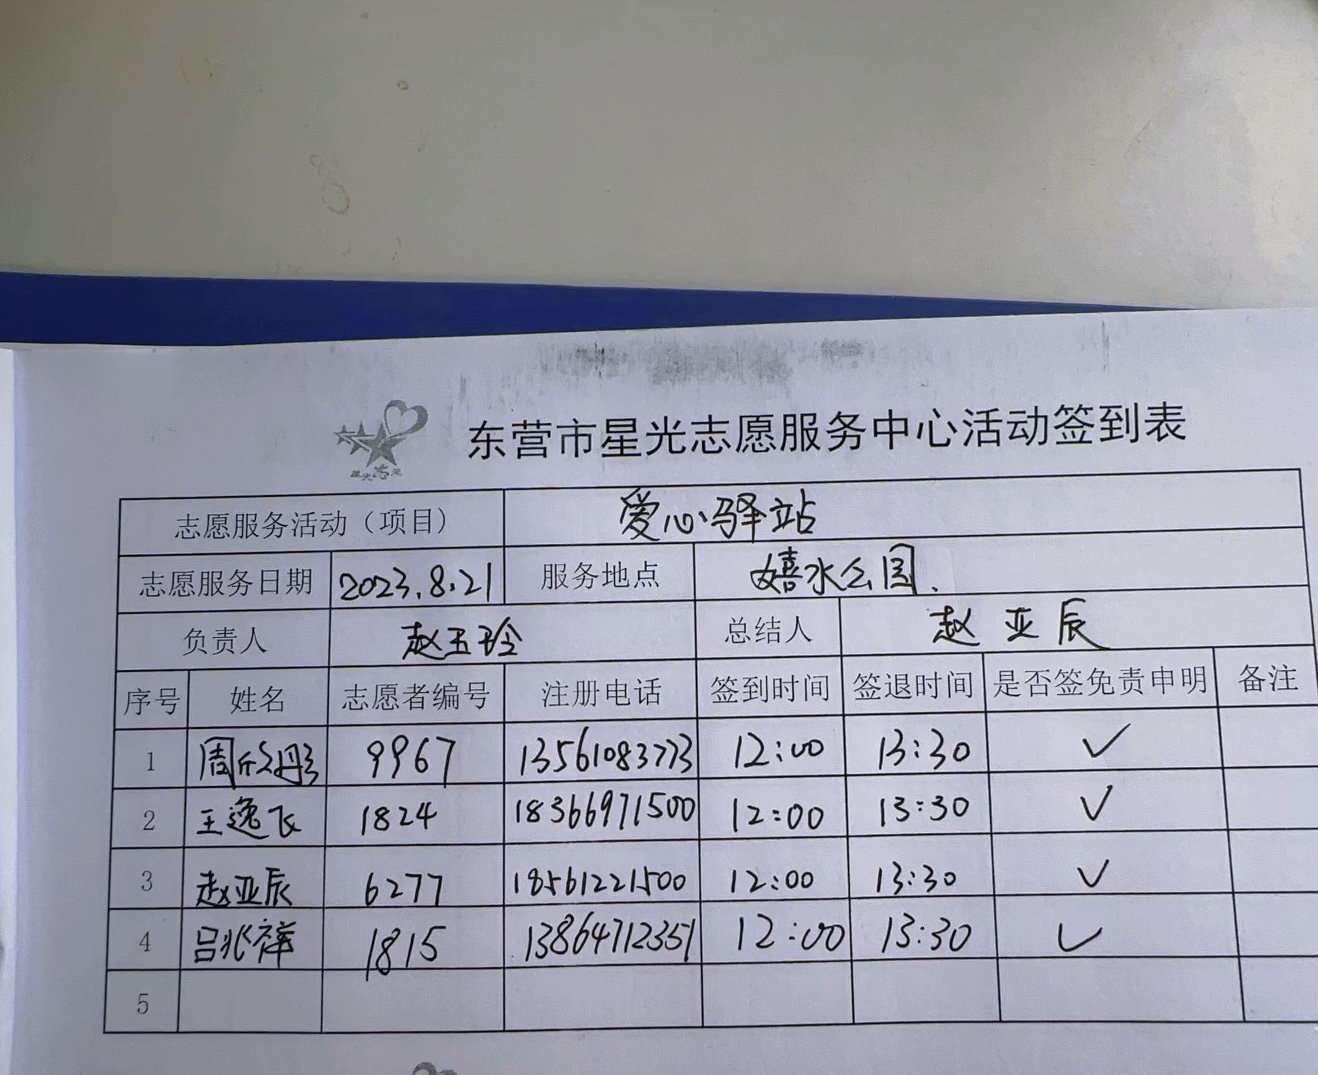 星光志愿
东营市星光志愿服务中心活动签到表
志愿服务活动（项目） 爱心驿站
志愿服务日期 2023.8.21 服务地点 嬉水公园.
负责人 赵玉玲 总结人 赵亚辰
序号 姓名 志愿者编号 注册电话 签到时间 签退时间 是否签免责申明 备注
1 周欣彤 9967 13561083773 12:00 13:30 ✓
2 王逸飞 1824 18366971500 12:00 13:30 ✓
3 赵亚辰 6277 18561221500 12:00 13:30 ✓
4 吕兆祥 1815 13864712351 12:00 13:30 ✓
5